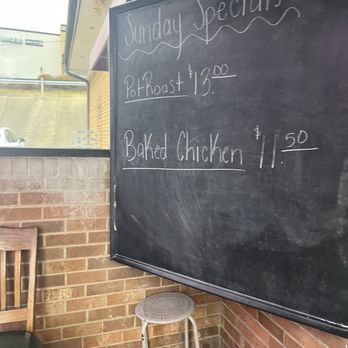 Sunday Specials
Pot Roast $13.00
Baked Chicken $11.50